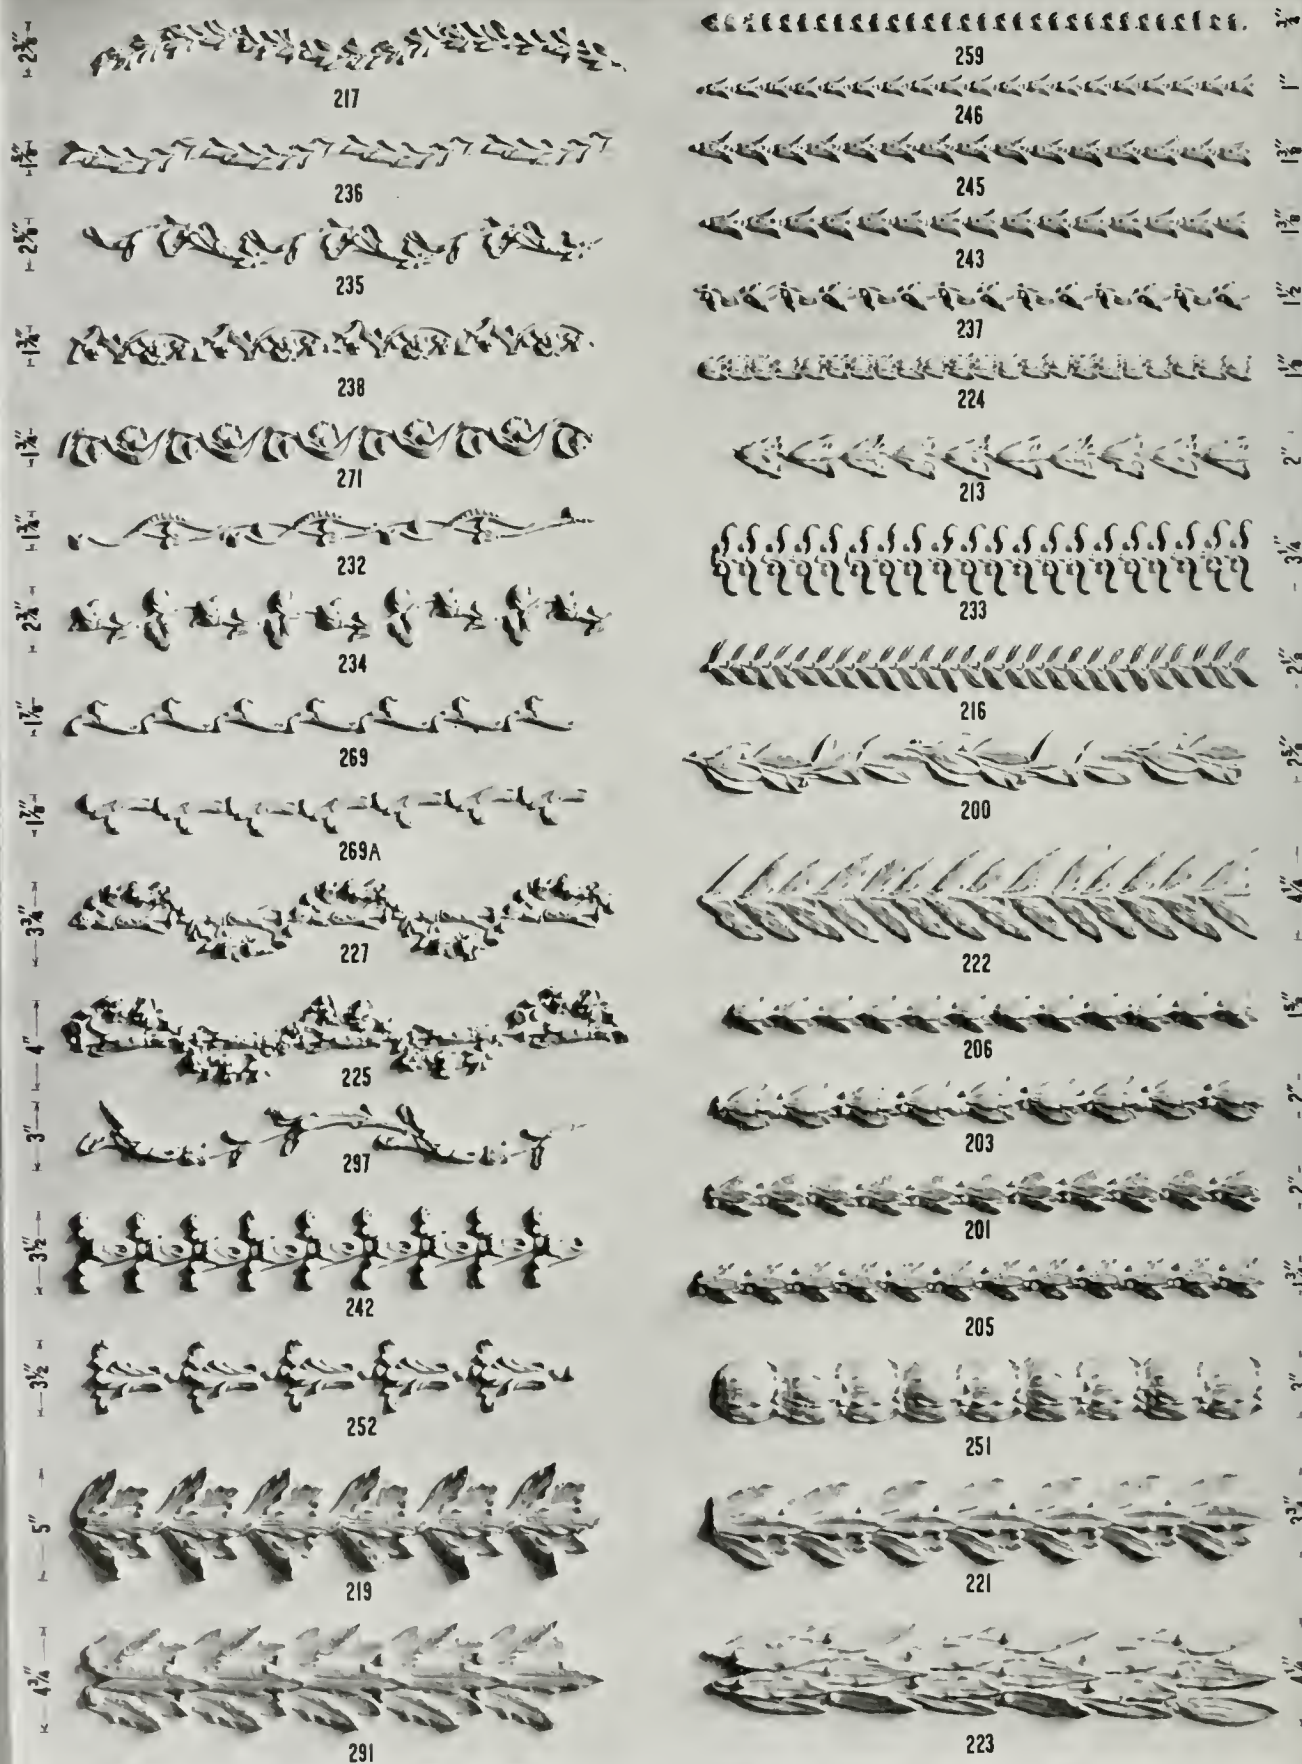 2 3/8"
217
1 5/8"
236
2 5/8"
235
1 3/4"
238
1 3/4"
271
1 3/4"
232
2 3/4"
234
1 7/8"
269
1 7/8"
269A
3 3/4"
227
4"
225
3"
297
3 1/2"
242
3 1/2"
252
5"
219
4 3/4"
291
259
1"
246
1 3/8"
245
1 3/8"
243
1 1/2"
237
1 1/8"
224
2"
213
3 1/4"
233
2 1/8"
216
2 5/8"
200
4 1/4"
222
1 5/8"
206
2"
203
2"
201
205
3"
251
221
223